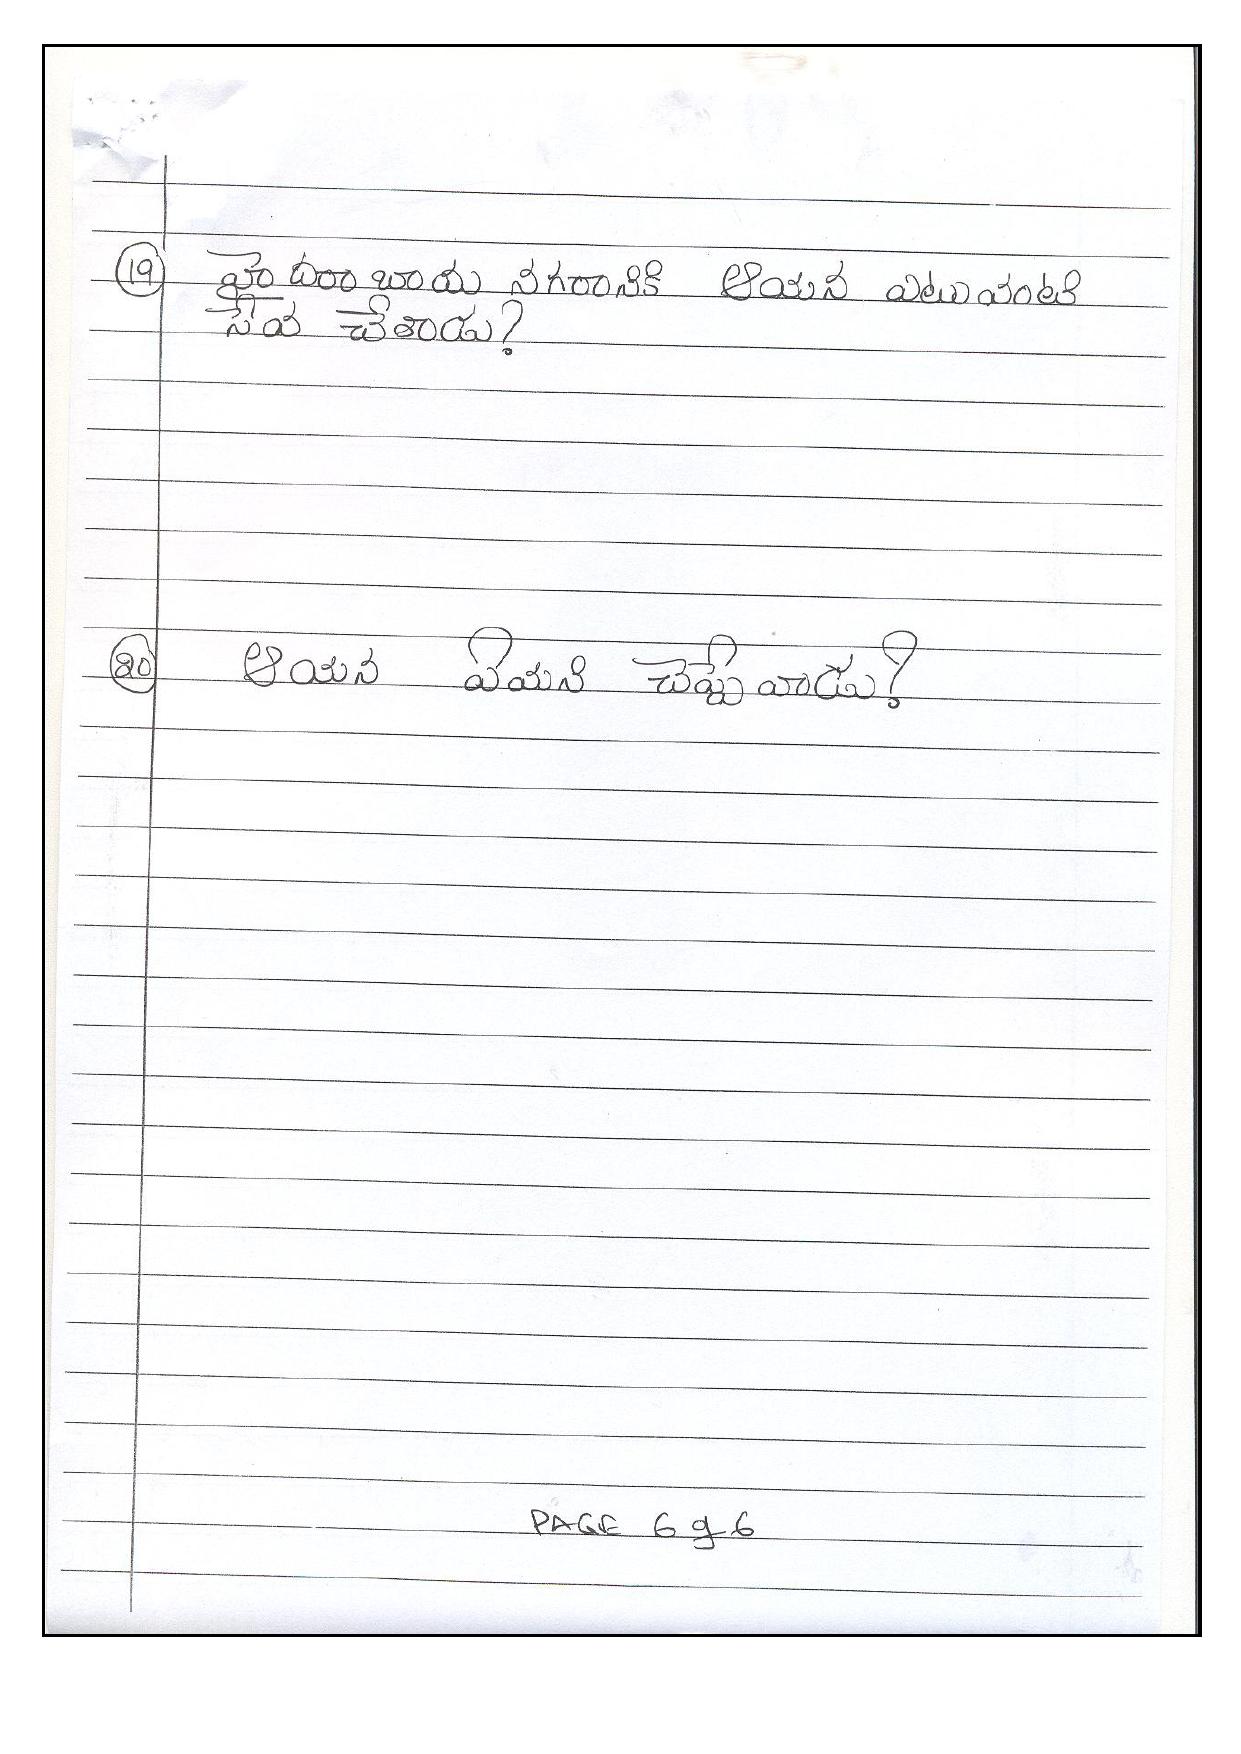 19 హైదరాబాదు నగరానికి ఆయన ఎటువంటి
సేవ చేశాడు?
20 ఆయన ఏమని చెప్పేవాడు?
PAGE 6 of 6